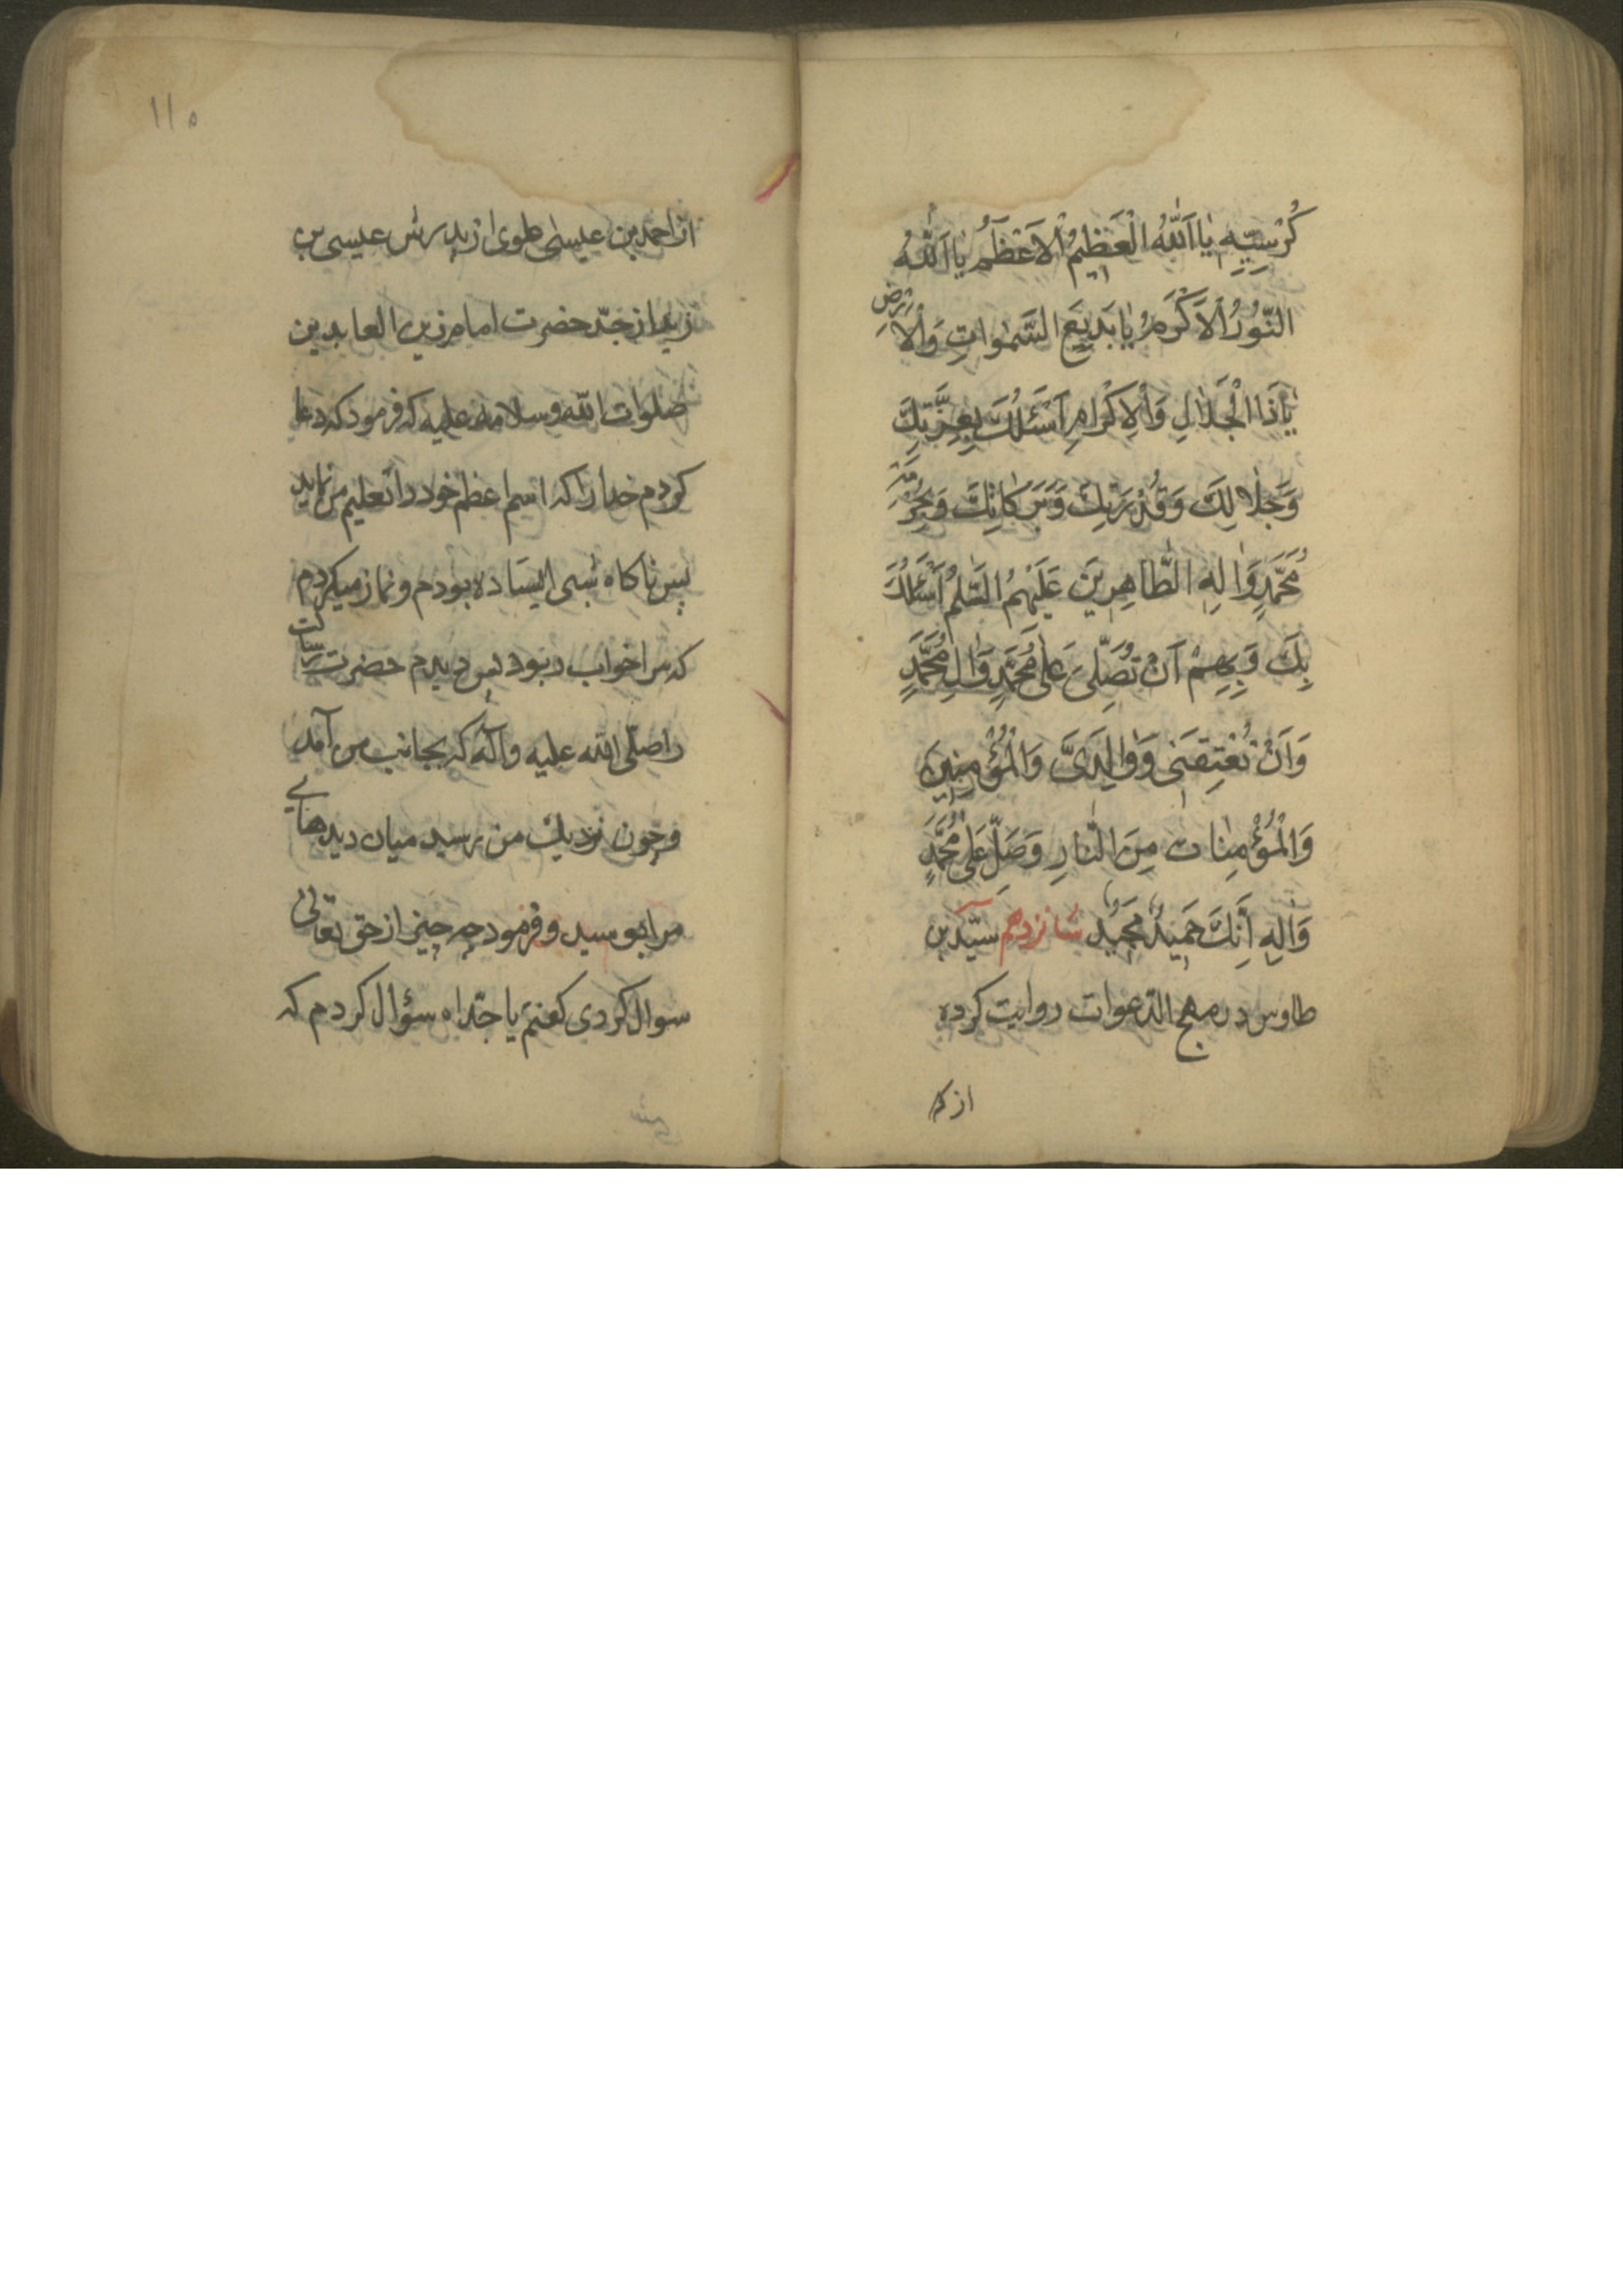 كُرْسِيِّهِ يٰا اَللّٰهُ الْعَظِيمُ الْاَعْظَمُ يٰا اَللّٰهُ
النُّورُ الْاَكْرَمُ يٰا بَدِيعَ السَّمٰوٰاتِ وَالْاَرْضِ
يٰا ذَا الْجَلٰالِ وَالْاِكْرٰامِ اَسْئَلُكَ بِعِزَّتِكَ
وَجَلٰالِكَ وَقُدْرَتِكَ وَبَرَكٰاتِكَ وَبِحُرْمَةِ
مُحَمَّدٍ وَاٰلِهِ الطَّاهِرِينَ عَلَيْهِمُ السَّلٰمُ اَسْئَلُكَ
بِكَ وَبِهِمْ اَنْ تُصَلِّىَ عَلٰى مُحَمَّدٍ وَاٰلِ مُحَمَّدٍ
وَاَنْ تُعْتِقَنِى وَوٰالِدَىَّ وَالْمُؤْمِنِينَ
وَالْمُؤْمِنٰاتِ مِنَ النّٰارِ وَصَلِّ عَلٰى مُحَمَّدٍ
وَاٰلِهِ اِنَّكَ حَمِيدٌ مَجِيدٌ شانزدهم سيّد بن
طاوس در مهج الدّعوات روايت كرده
از
۱۱۵
از احمد بن عيسى علوى از پدرش عيسى بن
زيد از جدّ حضرت امام زين العابدين
صلوات اللّه و سلامه عليه كه فرمود كه دعا
كردم خدا را كه اسم اعظم خود را تعليم من نمايد
پس ناكاه شبى ايستاده بودم و نماز ميكردم
كه مرا خواب ربود پس ديدم حضرت رسالت
را صلّى اللّه عليه وآله كه بجانب من آمد
و چون نزديك من رسيد ميان ديدهاى
مرا بوسيد و فرمود چه چيز از حق تعالى
سوال كردى كفتم يا جدّاه سؤال كردم كه